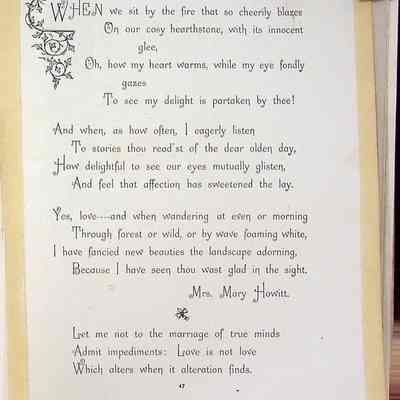 WHEN we sit by the fire that so cheerily blazes
On our cosy hearthstone, with its innocent
glee,
Oh, how my heart warms, while my eye fondly
gazes
To see my delight is partaken by thee!
And when, as how often, I eagerly listen
To stories thou read'st of the dear olden day,
How delightful to see our eyes mutually glisten,
And feel that affection has sweetened the lay.
Yes, love---and when wandering at even or morning
Through forest or wild, or by wave foaming white,
I have fancied new beauties the landscape adorning,
Because I have seen thou wast glad in the sight.
Mrs. Mary Howitt.
Let me not to the marriage of true minds
Admit impediments: Love is not love
Which alters when it alteration finds.
47